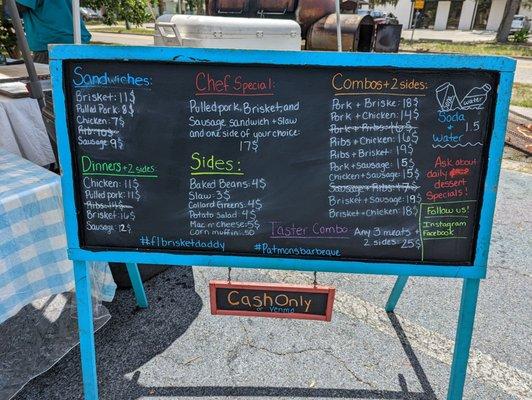 Sandwiches:
Brisket: 11$
Pulled Pork: 8$
Chicken: 7$
Ribs: 10$
Sausage 9$
Dinners + 2 sides:
Chicken: 11$
Pulled pork: 11$
Ribs:
Brisket: 16$
Sausage: 12$
Chef Special:
Pulled pork, Brisket, and
Sausage sandwich + Slaw
and one side of your choice:
17$
Sides:
Baked Beans: 4$
Slaw: 3$
Collard Greens: 4$
Potato salad: 4$
Mac n' cheese: 5$
Corn muffin: .50
Combos + 2 sides:
Pork + Briske: 18$
Pork + Chicken: 14$
Pork + Ribs: 16$
Ribs + Chicken: 16$
Ribs + Brisket: 19$
Pork + Sausage: 15$
Chicken + Sausage: 15$
Sausage + Ribs: 17$
Brisket + Sausage: 19$
Brisket + Chicken: 18$
water
Soda
+ 1.5
water
Ask about
daily
dessert
Specials!
Follow us!
Instagram
Facebook
#flbrisketdaddy
#Patmonsbarbeque
Taster Combo
Any 3 meats +
2 sides: 25$
Cash Only
or Venmo